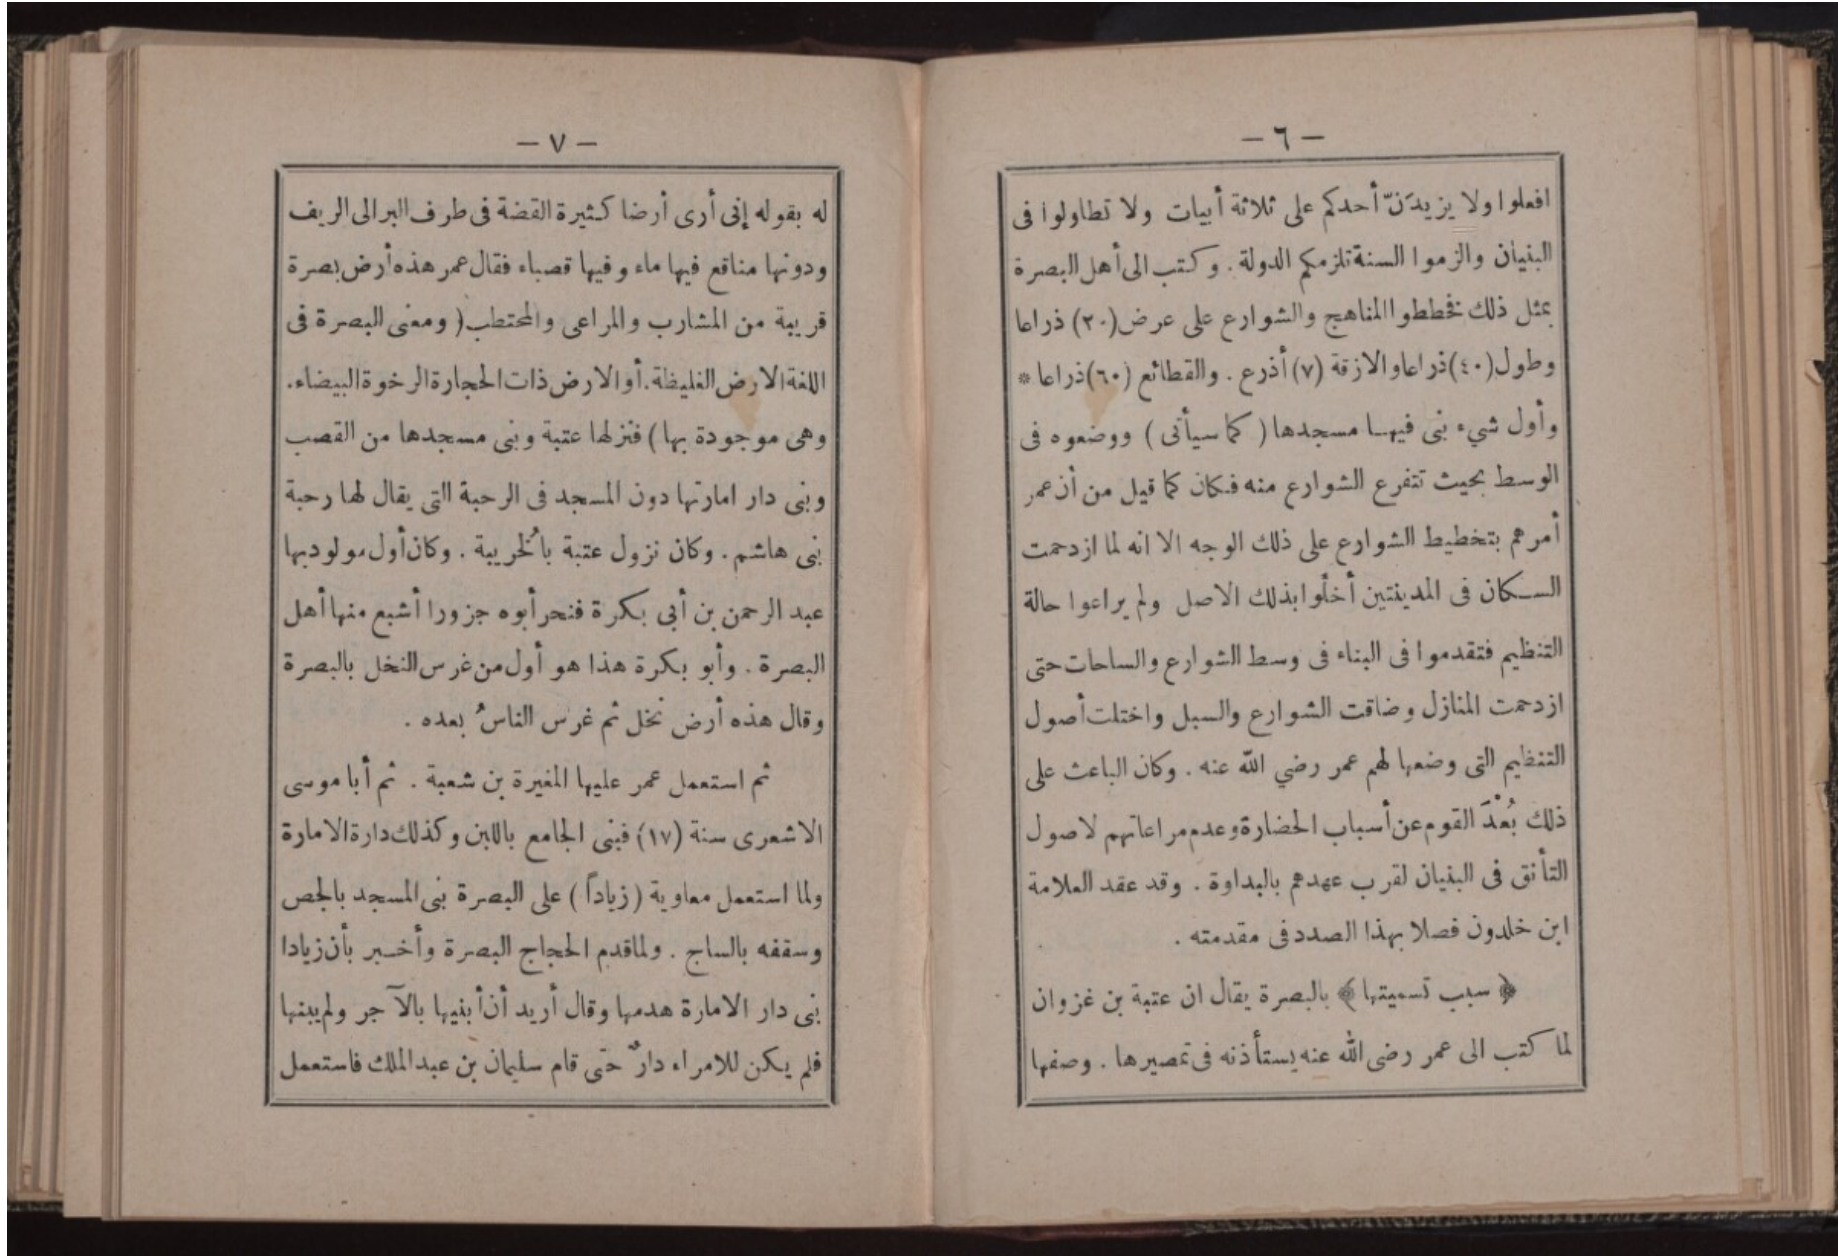 — ٦ —
افعلوا ولا يزيدَنّ أحدكم على ثلاثة أبيات ولا تطاولوا فى
البنيان والزموا السنة تلزمكم الدولة . وكتب الى أهل البصرة
بمثل ذلك فخططوا المناهج والشوارع على عرض (٢٠) ذراعا
وطول (٤٠) ذراعا والازقة (٧) أذرع . والقطائع (٦٠) ذراعا *
وأول شيء بنى فيها مسجدها ( كما سيأتى ) ووضعوه فى
الوسط بحيث تتفرع الشوارع منه فكان كما قيل من أن عمر
أمرهم بتخطيط الشوارع على ذلك الوجه الا انه لما ازدحمت
السكان فى المدينتين أخلُّوا بذلك الاصل ولم يراعوا حالة
التنظيم فتقدموا فى البناء فى وسط الشوارع والساحات حتى
ازدحمت المنازل وضاقت الشوارع والسبل واختلت أصول
التنظيم التى وضعها لهم عمر رضي الله عنه . وكان الباعث على
ذلك بُعْدَ القوم عن أسباب الحضارة وعدم مراعاتهم لاصول
التأنق فى البنيان لقرب عهدهم بالبداوة . وقد عقد العلامة
ابن خلدون فصلا بهذا الصدد فى مقدمته .
﴿ سبب تسميتها ﴾ بالبصرة يقال ان عتبة بن غزوان
لما كتب الى عمر رضى الله عنه يستأذنه فى تمصيرها . وصفها
— ٧ —
له بقوله إنى أرى أرضا كثيرة القضة فى طرف البر الى الريف
ودونها مناقع فيها ماء وفيها قصباء فقال عمر هذه أرض بصرة
قريبة من المشارب والمراعى والمحتطب ( ومعنى البصرة فى
اللغة الارض الغليظة . أو الارض ذات الحجارة الرخوة البيضاء .
وهى موجودة بها ) فنزلها عتبة وبنى مسجدها من القصب
وبنى دار امارتها دون المسجد فى الرحبة التى يقال لها رحبة
بنى هاشم . وكان نزول عتبة بالخُريبة . وكان أول مولود بها
عبد الرحمن بن أبى بكرة فنحر أبوه جزورا أشبع منها أهل
البصرة . وأبو بكرة هذا هو أول من غرس النخل بالبصرة
وقال هذه أرض نخل ثم غرس الناسُ بعده .
ثم استعمل عمر عليها المغيرة بن شعبة . ثم أبا موسى
الاشعرى سنة (١٧) فبنى الجامع باللبن وكذلك دارة الامارة
ولما استعمل معاوية ( زياداً ) على البصرة بنى المسجد بالجص
وسقفه بالساج . ولما قدم الحجاج البصرة وأخبر بأن زيادا
بنى دار الامارة هدمها وقال أريد أن أبنيها بالآجر ولم يبنها
فلم يكن للامراء دارٌ حتى قام سليمان بن عبد الملك فاستعمل